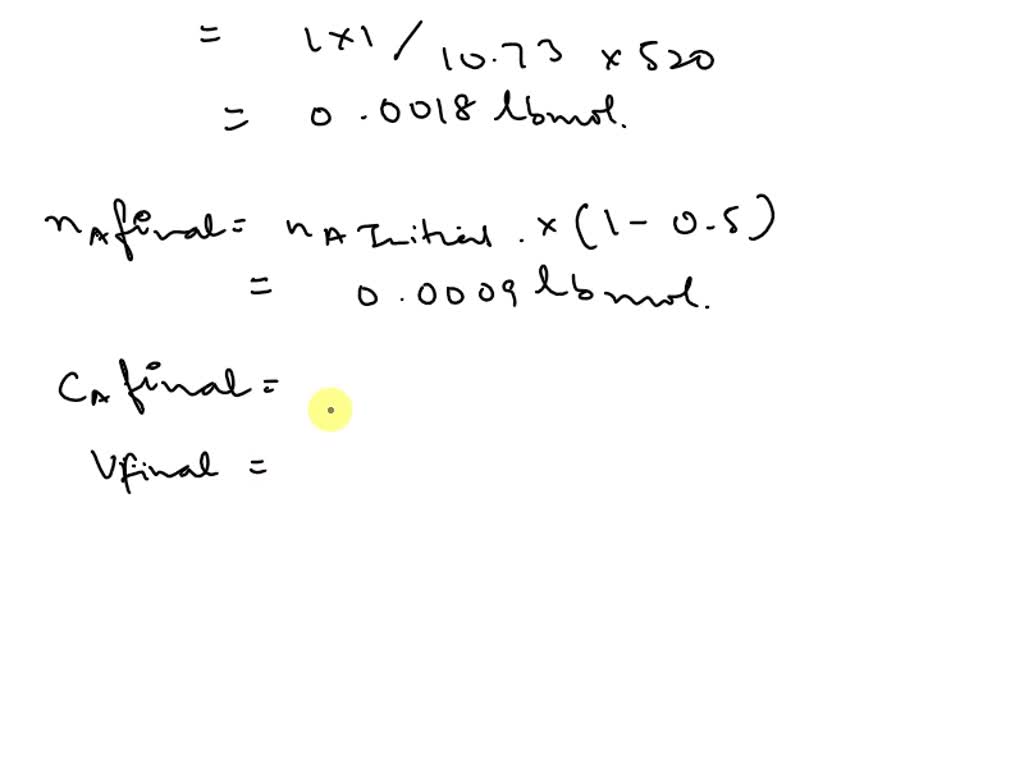 = 1×1 / 10.73 × 520
= 0.0018 lbmol.
nA final = nA Initial . × (1 - 0.5)
= 0.0009 lbmol.
CA final =
Vfinal =